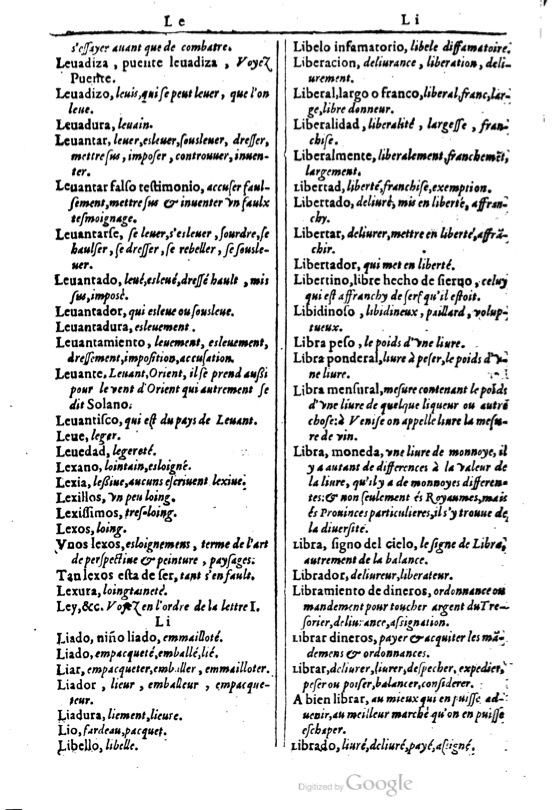 Le
s'eſſayer auant que de combatre.
Leuadiza, puente leuadiza, Voyez
Puente.
Leuadizo, leuis, qui se peut leuer, que l'on
leue.
Leuadura, leuain.
Leuantar, leuer, esleuer, sousleuer, dreſſer,
mettre sus, imposer, controuuer, inuen-
ter.
Leuantar falſo teſtimonio, accuser faul-
sement, mettre sus & inuenter vn faulx
tesmoignage.
Leuantarſe, se leuer, s'esleuer, sourdre, se
haulser, se dreſſer, se rebeller, se sousle-
uer.
Leuantado, leué, esleué, dreſſé hault, mis
sus, imposé.
Leuantador, qui esleue ou sousleue.
Leuantadura, esleuement.
Leuantamiento, leuement, esleuement,
dreſſement, imposition, accusation.
Leuante, Leuant, Orient, il se prend auſſi
pour le vent d'Orient qui autrement se
dit Solano.
Leuantiſco, qui est du pays de Leuant.
Leue, leger.
Leuedad, legereté.
Lexano, lointain, esloigné.
Lexia, leſſiue, aucuns escriuent lexiue.
Lexillos, vn peu loing.
Lexiſſimos, tres-loing.
Lexos, loing.
Vnos lexos, esloignemens, terme de l'art
de perspectiue & peinture, paysages.
Tan lexos eſta de ſer, tant s'en fault.
Lexura, loingtaineté.
Ley, &c. Voyez en l'ordre de la lettre I.
Li
Liado, niño liado, emmailloté.
Liado, empacqueté, emballé, lié.
Liar, empacqueter, emballer, emmailloter.
Liador, lieur, emballeur, empacque-
teur.
Liadura, liement, lieure.
Lio, fardeau, pacquet.
Libello, libelle.
Li
Libelo infamatorio, libele diffamatoire.
Liberacion, deliurance, liberation, deli-
urement.
Liberal, largo o franco, liberal, franc, lar-
ge, libre donneur.
Liberalidad, liberalité, largeſſe, fran-
chise.
Liberalmente, liberalement, franchemẽt,
largement.
Libertad, liberté, franchise, exemption.
Libertado, deliuré, mis en liberté, affran-
chy.
Libertar, deliurer, mettre en liberté, affrã-
chir.
Libertador, qui met en liberté.
Libertino, libre hecho de ſieruo, celuy
qui est affranchy de serf qu'il estoit.
Libidinoſo, libidineux, paillard, volup-
tueux.
Libra peſo, le poids d'vne liure.
Libra ponderal, liure à peser, le poids d'v-
ne liure.
Libra menſural, mesure contenant le poids
d'vne liure de quelque liqueur ou autre
chose: à Venise on appelle liure la mesu-
re de vin.
Libra, moneda, vne liure de monnoye, il
y a autant de differences à la valeur de
la liure, qu'il y a de monnoyes differen-
tes: & non seulement és Royaumes, mais
és Prouinces particulieres, il s'y trouue de
la diuersité.
Libra, ſigno del cielo, le signe de Libra,
autrement de la balance.
Librador, deliureur, liberateur.
Libramiento de dineros, ordonnance ou
mandement pour toucher argent du Tre-
sorier, deliurance, aſſignation.
Librar dineros, payer & acquiter les mã-
demens & ordonnances.
Librar, deliurer, liurer, despecher, expedier,
peser ou poiser, balancer, considerer.
A bien librar, au mieux qui en puiſſe ad-
uenir, au meilleur marché qu'on en puiſſe
eschaper.
Librado, liuré, deliuré, payé, aſſigné.
Digitized by Google